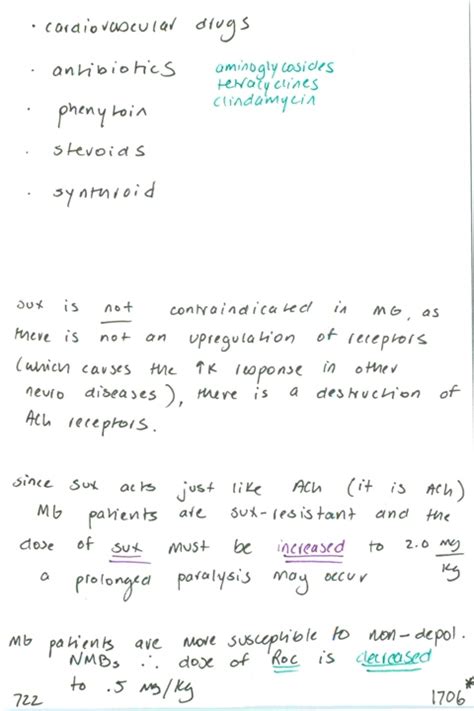 · cardiovascular drugs
· antibiotics aminoglycosides
tetracyclines
clindamycin
· phenytoin
· steroids
· synthroid
sux is not contraindicated in MG, as
there is not an upregulation of receptors
(which causes the ↑K response in other
neuro diseases), there is a destruction of
ACh receptors.
since sux acts just like ACh (it is ACh)
MG patients are sux-resistant and the
dose of sux must be increased to 2.0 mg/kg
a prolonged paralysis may occur
MG patients are more susceptible to non-depol.
NMBs ∴ dose of Roc is decreased
to .5 mg/kg
722 1706*